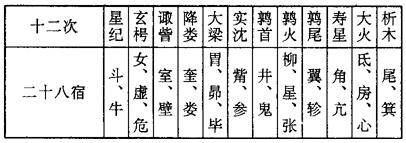 十二次 星纪 玄枵 诹訾 降娄 大梁 实沈 鹑首 鹑火 鹑尾 寿星 大火 析木
二十八宿 斗、牛 女、虚、危 室、壁 奎、娄 胃、昴、毕 觜、参 井、鬼 柳、星、张 翼、轸 角、亢 氐、房、心 尾、箕